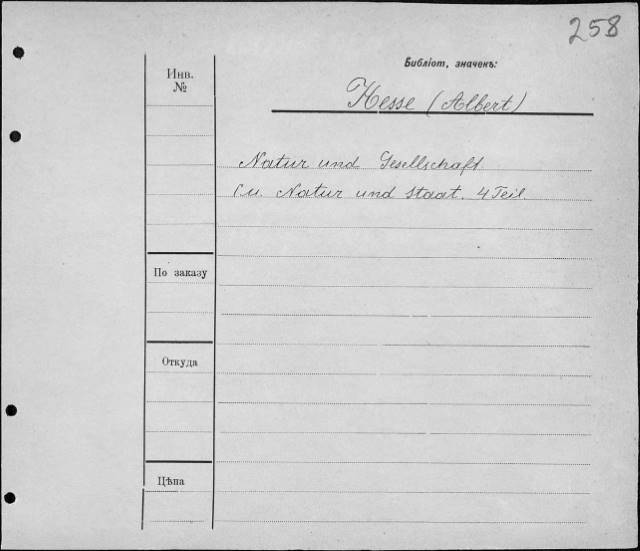 258
Библіот. значекъ:
Инв.
№
Hesse (Albert)
Natur und Gesellschaft.
См. Natur und Staat. 4 Teil.
По заказу
Откуда
Цѣна